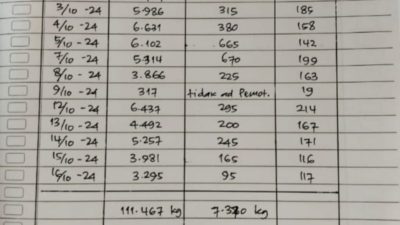 3/10 -24 5.986 315 185
4/10 -24 6.631 380 158
5/10 -24 6.102 665 142
7/10 -24 5.914 670 199
8/10 -24 3.866 225 163
9/10 -24 317 tidak ad Pemot. 19
12/10 -24 6.437 295 214
13/10 -24 4.492 200 167
14/10 -24 5.257 245 171
15/10 -24 3.981 165 116
16/10 -24 3.295 95 117
111.467 kg 7.370 kg